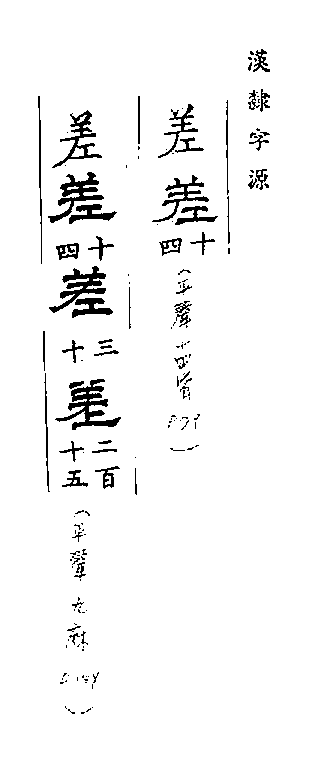 漢隸字源
差
差
十四
(平聲 皆 P.39)
差
差
十四
差
三十
差
二百十五
(平聲九麻